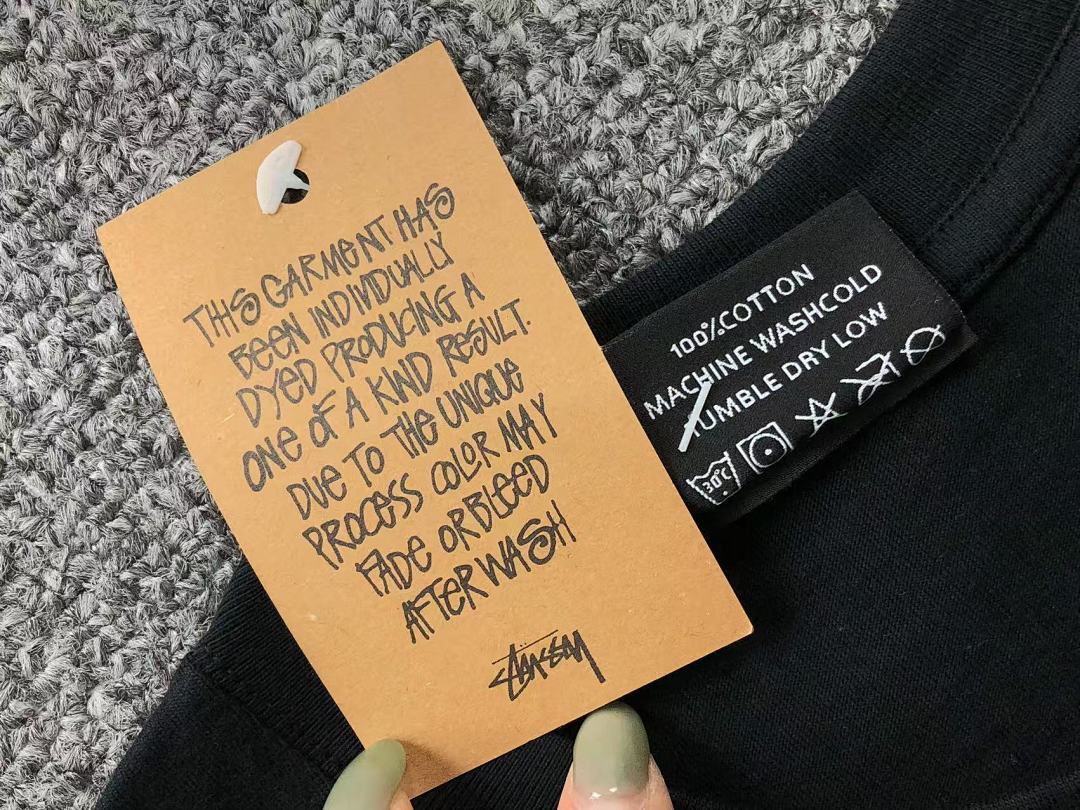 THIS GARMENT HAS
BEEN INDIVIDUALLY
DYED PRODUCING A
ONE OF A KIND RESULT.
DUE TO THE UNIQUE
PROCESS COLOR MAY
FADE OR BLEED
AFTER WASH
STÜSSY
100% COTTON
MACHINE WASHCOLD
TUMBLE DRY LOW
30°C